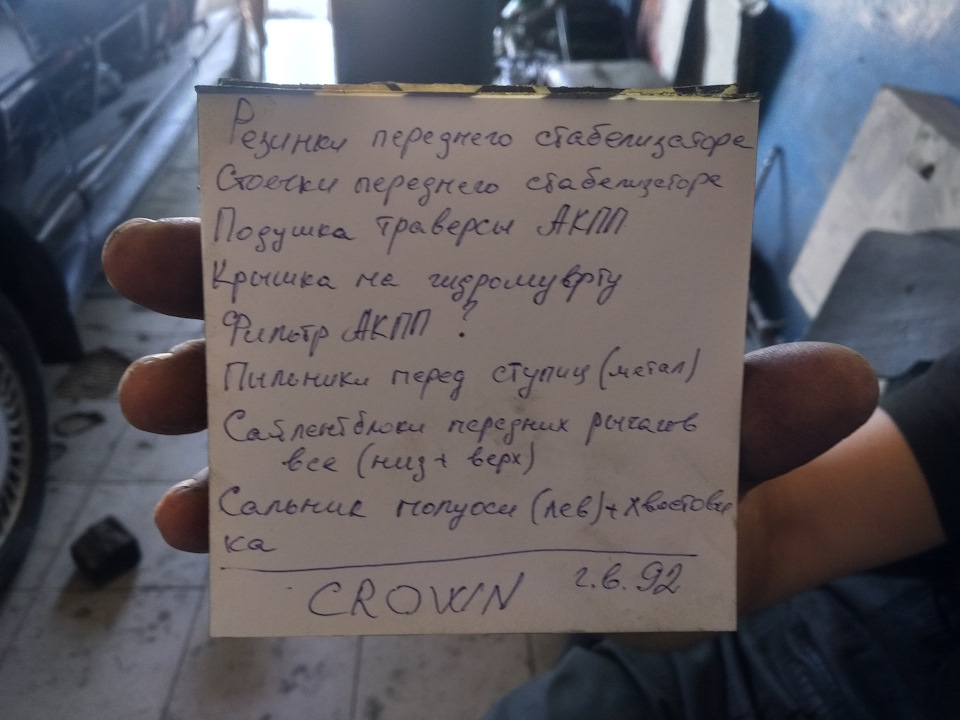 Резинки переднего стабелизаторе
Стоечки переднего стабелизаторе
Подушка траверсы АКПП
Крышка на гидромуврту
Фильтр АКПП ?
Пыльники перед ступиц (метал)
Сайлентблоки передних рычагов
все (низ + верх)
Сальник полуоси (лев) + хвостови
ка
CROWN г.в. 92